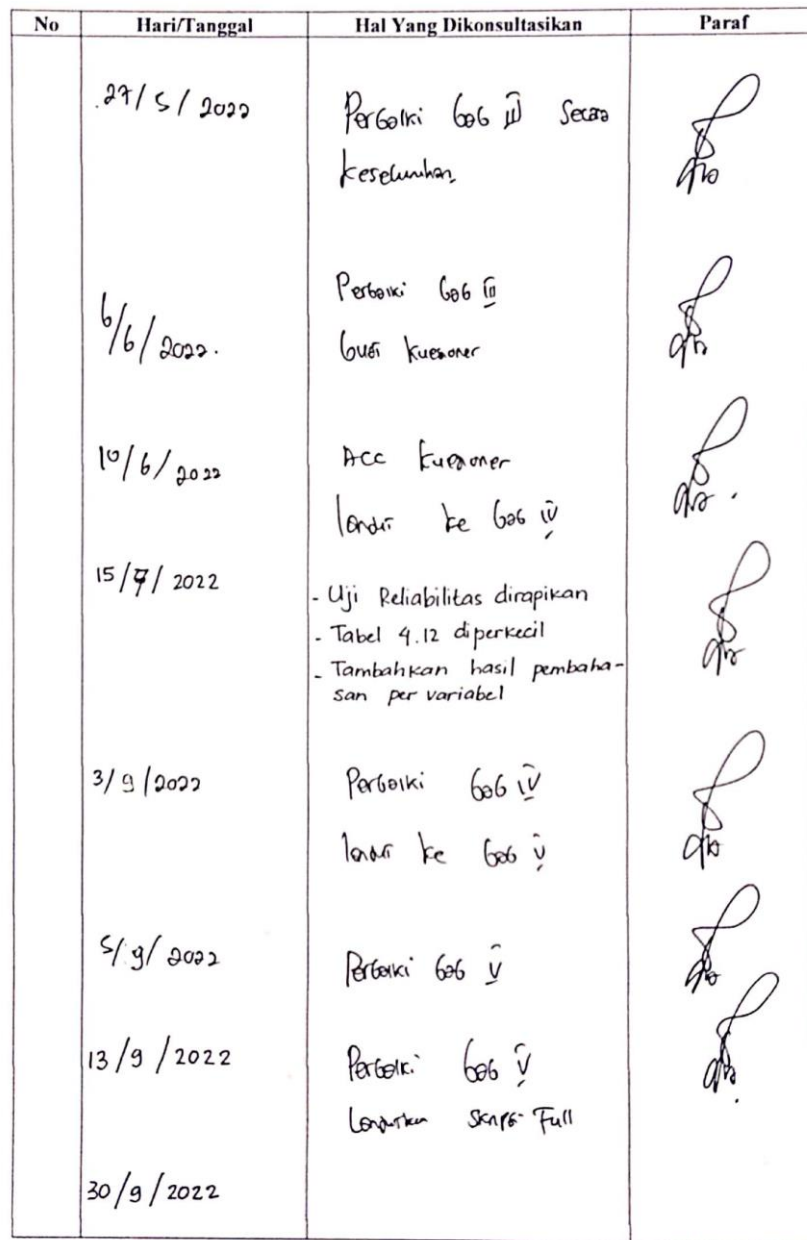 No Hari/Tanggal Hal Yang Dikonsultasikan Paraf
27/5/2022 Perbaiki bab III Secara
keseluruhan
6/6/2022. Perbaiki bab III
buat kuesioner
10/6/2022 ACC kuesioner
lanjut ke bab IV
15/7/2022 - Uji Reliabilitas dirapikan
- Tabel 4.12 diperkecil
- Tambahkan hasil pembaha-
san per variabel
3/9/2022 Perbaiki bab IV
lanjut ke bab V
5/9/2022 Perbaiki bab V
13/9/2022 Perbaiki bab V
Lanjutkan Skripsi Full
30/9/2022